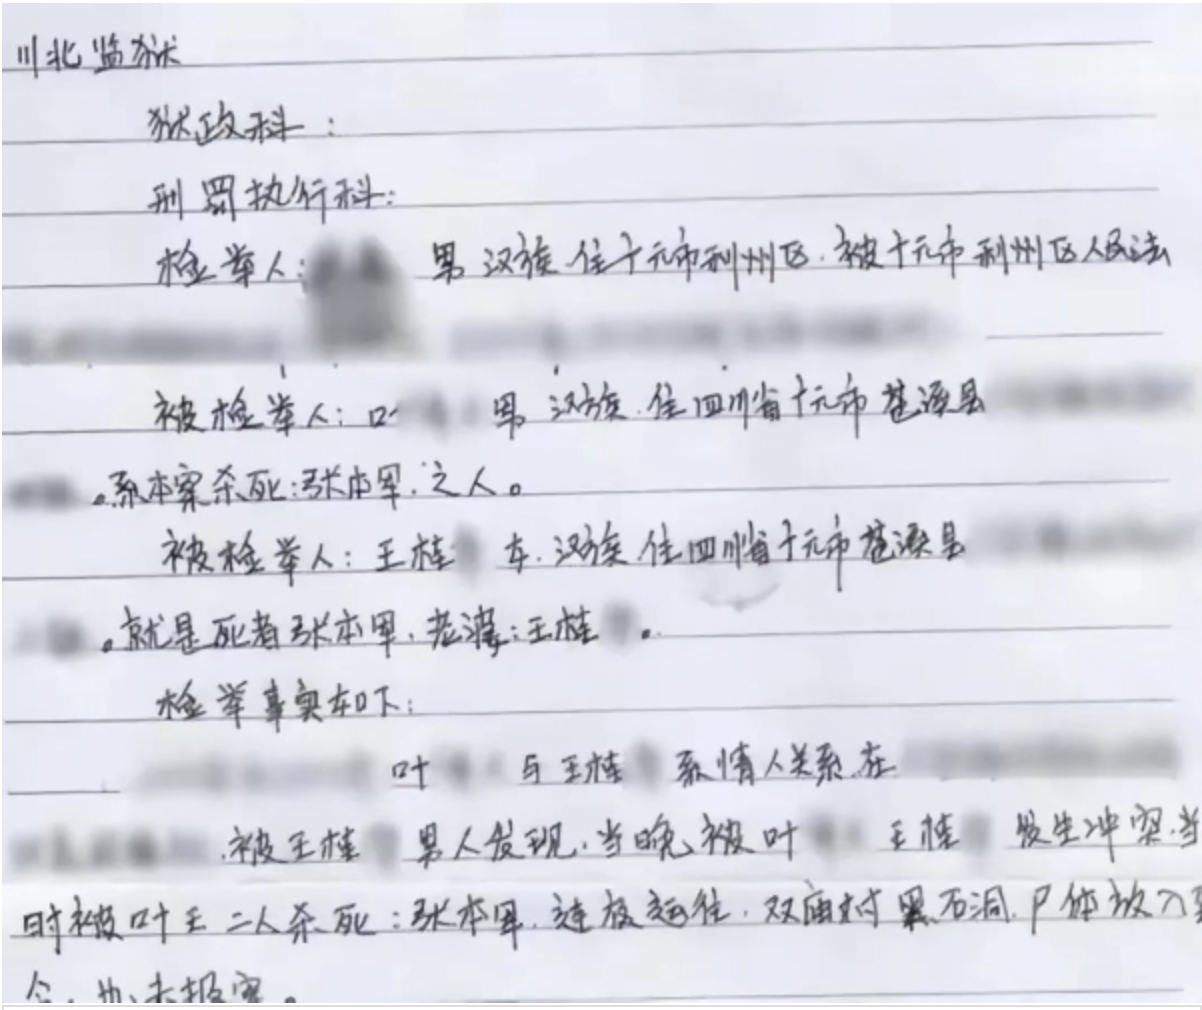 川北监狱
狱政科：
刑罚执行科：
检举人： 男 汉族 住广元市利州区．被广元市利州区人民法
被检举人：叶 男 汉族．住四川省广元市苍溪县
。系本案杀死：张本军．之人。
被检举人：王桂 女．汉族．住四川省广元市苍溪县
。就是死者张本军．老婆：王桂 。
检举事实如下：
叶 与王桂 系情人关系．在
．被王桂 男人发现．当晚被叶 王桂 发生冲突．当
时被叶王二人杀死：张本军．连夜运往．双庙村黑石洞．尸体放入至
今．也未报案。